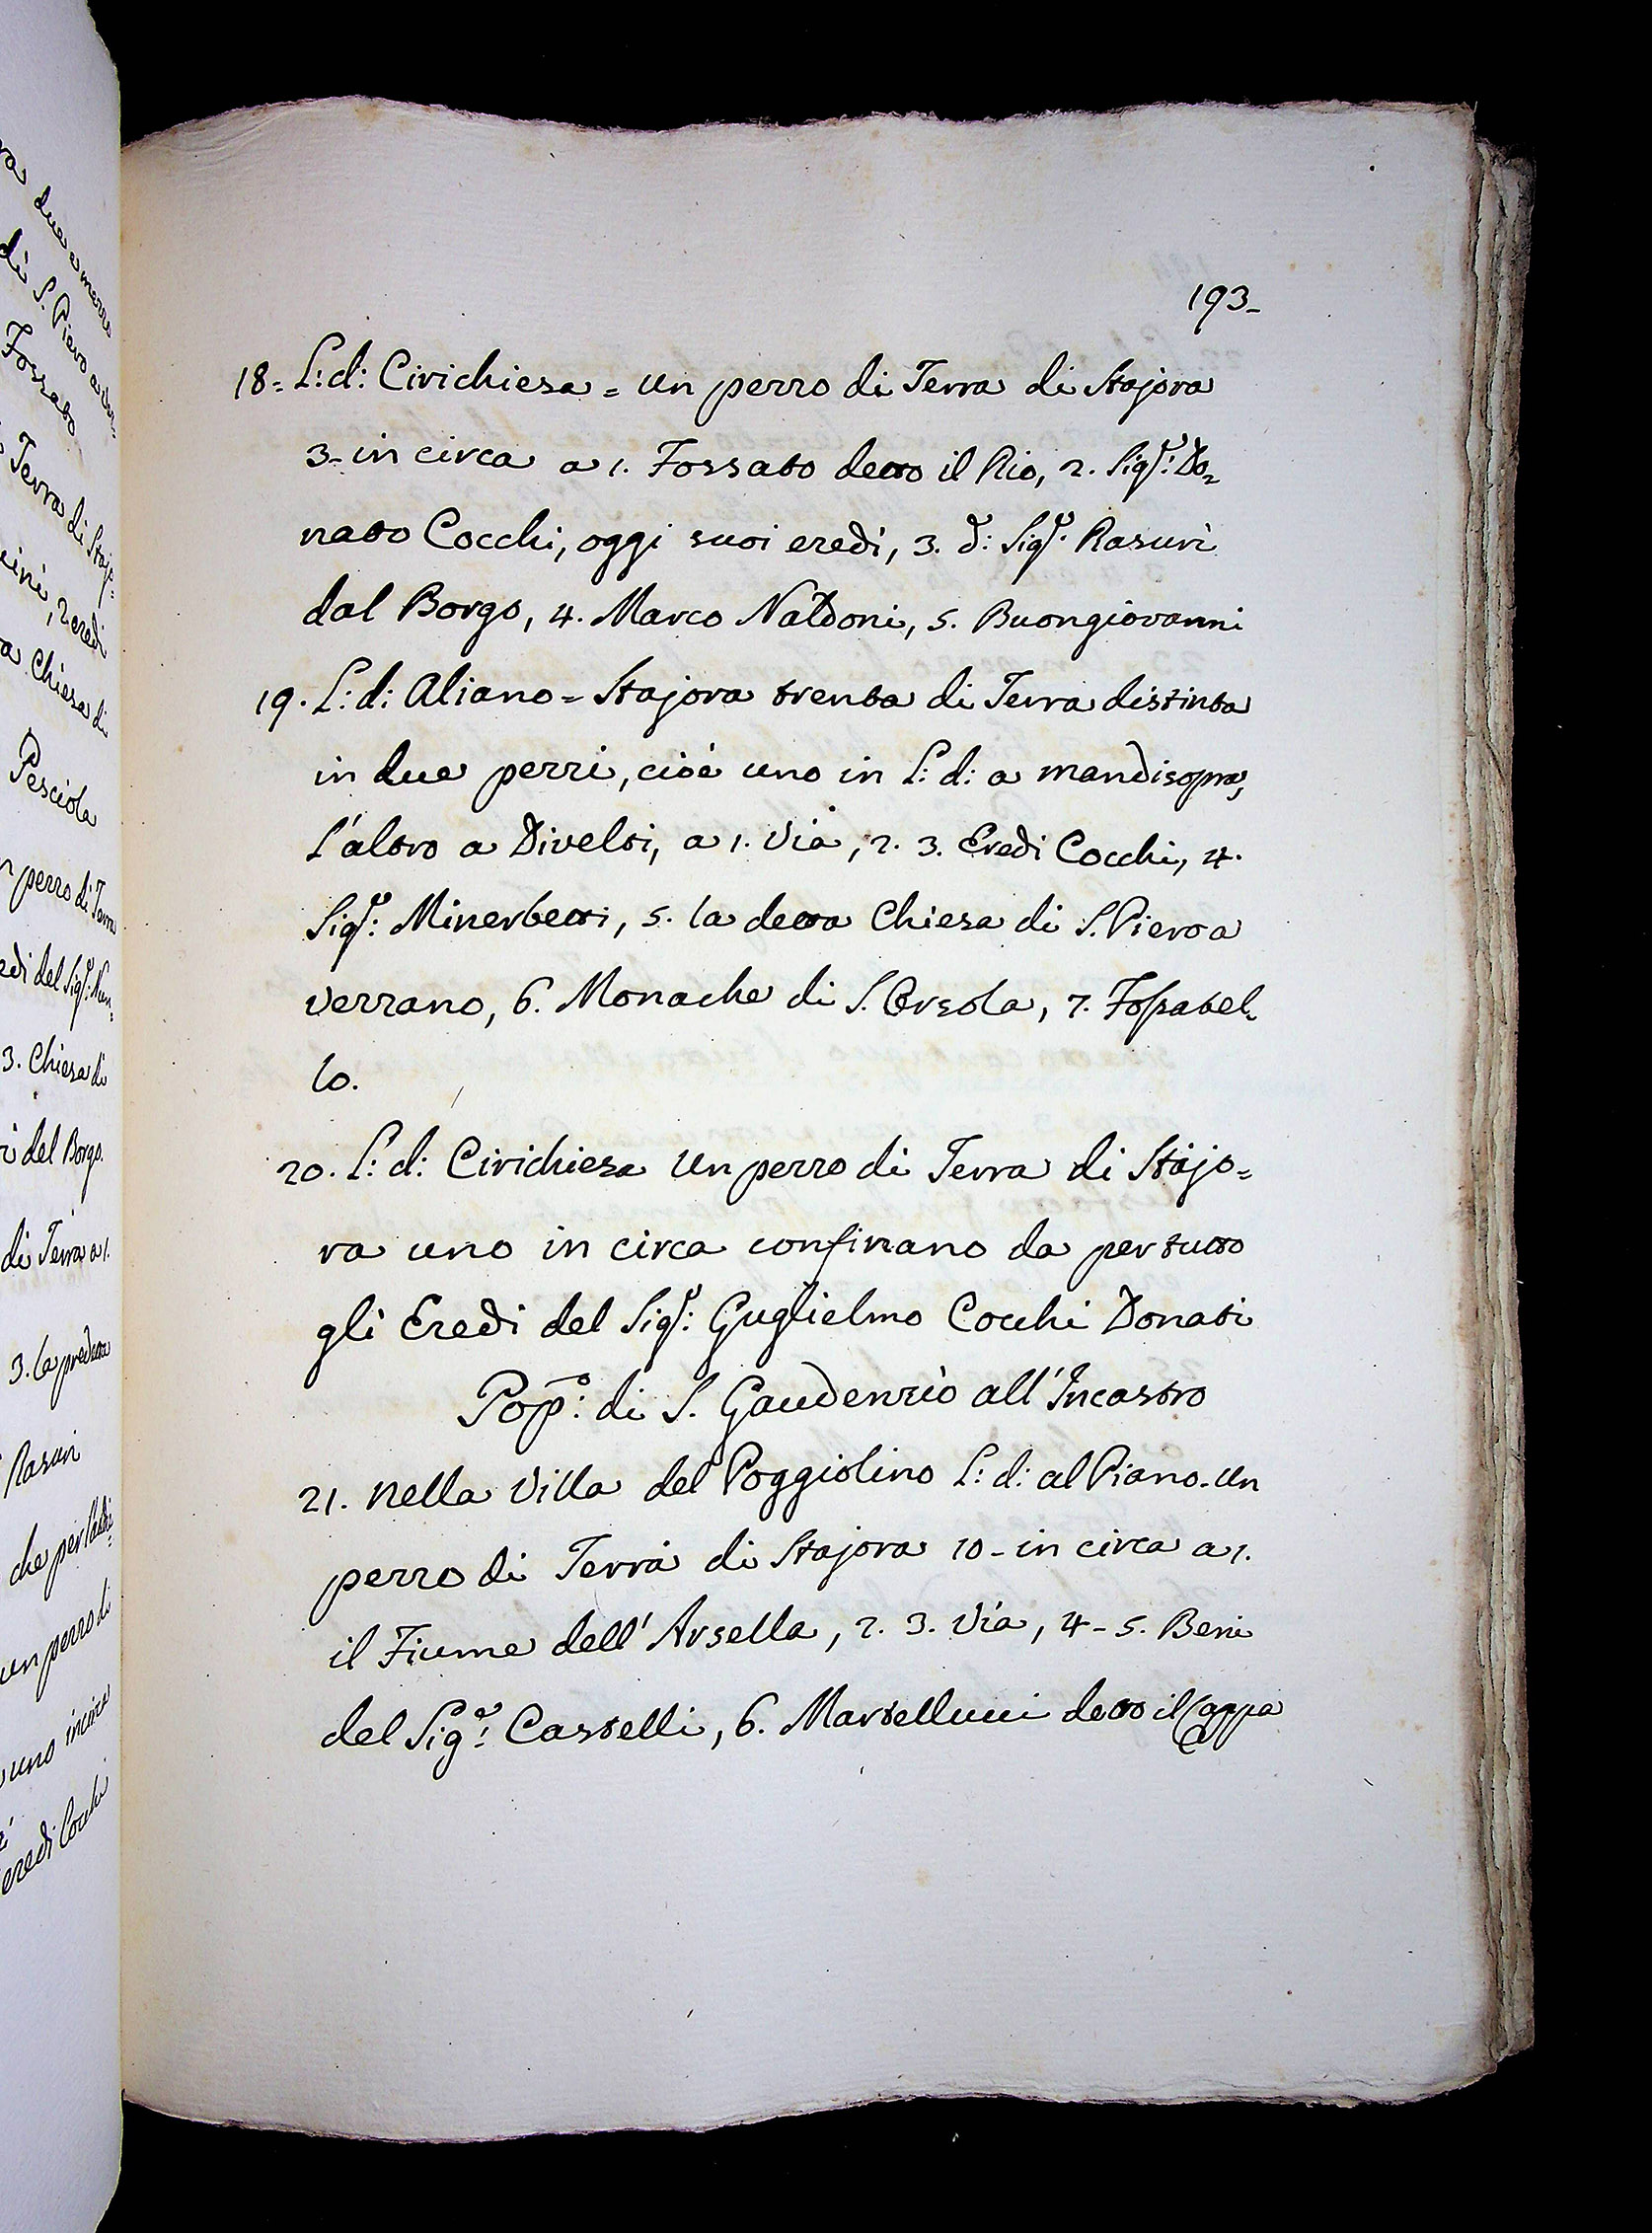 193-
18= L: d: Cirichiesa = un pezzo di Terra di Stajora
3- in circa a 1. Fossato detto il Rio, 2. Sig.r: Do=
nato Cocchi, oggi suoi eredi, 3. d: Sig.r Rasuri
dal Borgo, 4. Marco Naldoni, 5. Buongiovanni
19. L: d: Aliano = Stajora trenta di Terra distinta
in due pezzi, cioè uno in L: d: a mandisopra,
l'altro a Divelti, a 1. Via, 2. 3. Eredi Cocchi, 4.
Sig.r: Minerbetti, 5. la detta Chiesa di S. Piero a
Vezzano, 6. Monache di S. Orsola, 7. Fossatel=
lo.
20. L: d: Cirichiesa Un pezzo di Terra di Stajo=
ra uno in circa confinano da per tutto
gli Eredi del Sig.r: Guglielmo Cocchi Donati
Pop.o: di S. Gaudenzio all'Incastro
21. Nella Villa del Poggiolino L: d: al Piano - Un
pezzo di Terra di Stajora 10 - in circa a 1.
il Fiume dell'Arsella, 2. 3. Via, 4 - 5. Beni
del Sig.r: Casselli, 6. Martellucci detto il Cappa
Pesciola
3. Chiesa di
ri del Borgo.
di Terra a 1.
3. la predetta
Rasuri
che per l'addi=
un pezzo di
uno in circa
eredi Cocchi